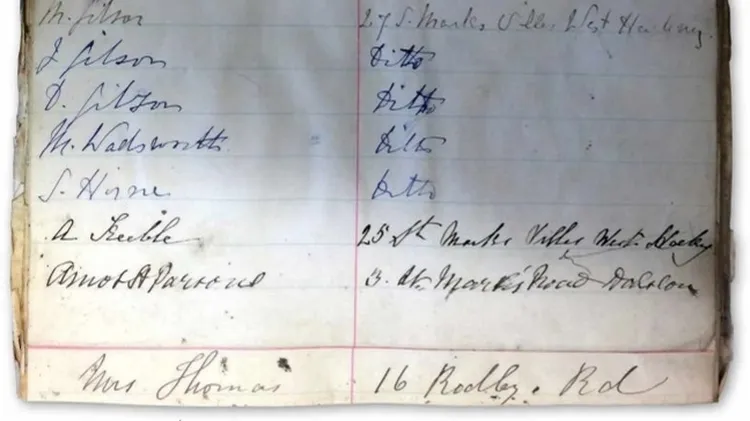 M. Gilson 27 S. Marks Villas West Hackney
J Gilson Ditto
D. Gilson Ditto
M. Wadsworth Ditto
S. Horne Ditto
A Keeble 25 St Marks Villas West Hackney
H Parsons 3. St Mark's Road Dalston
Mrs Thomas 16 Rd